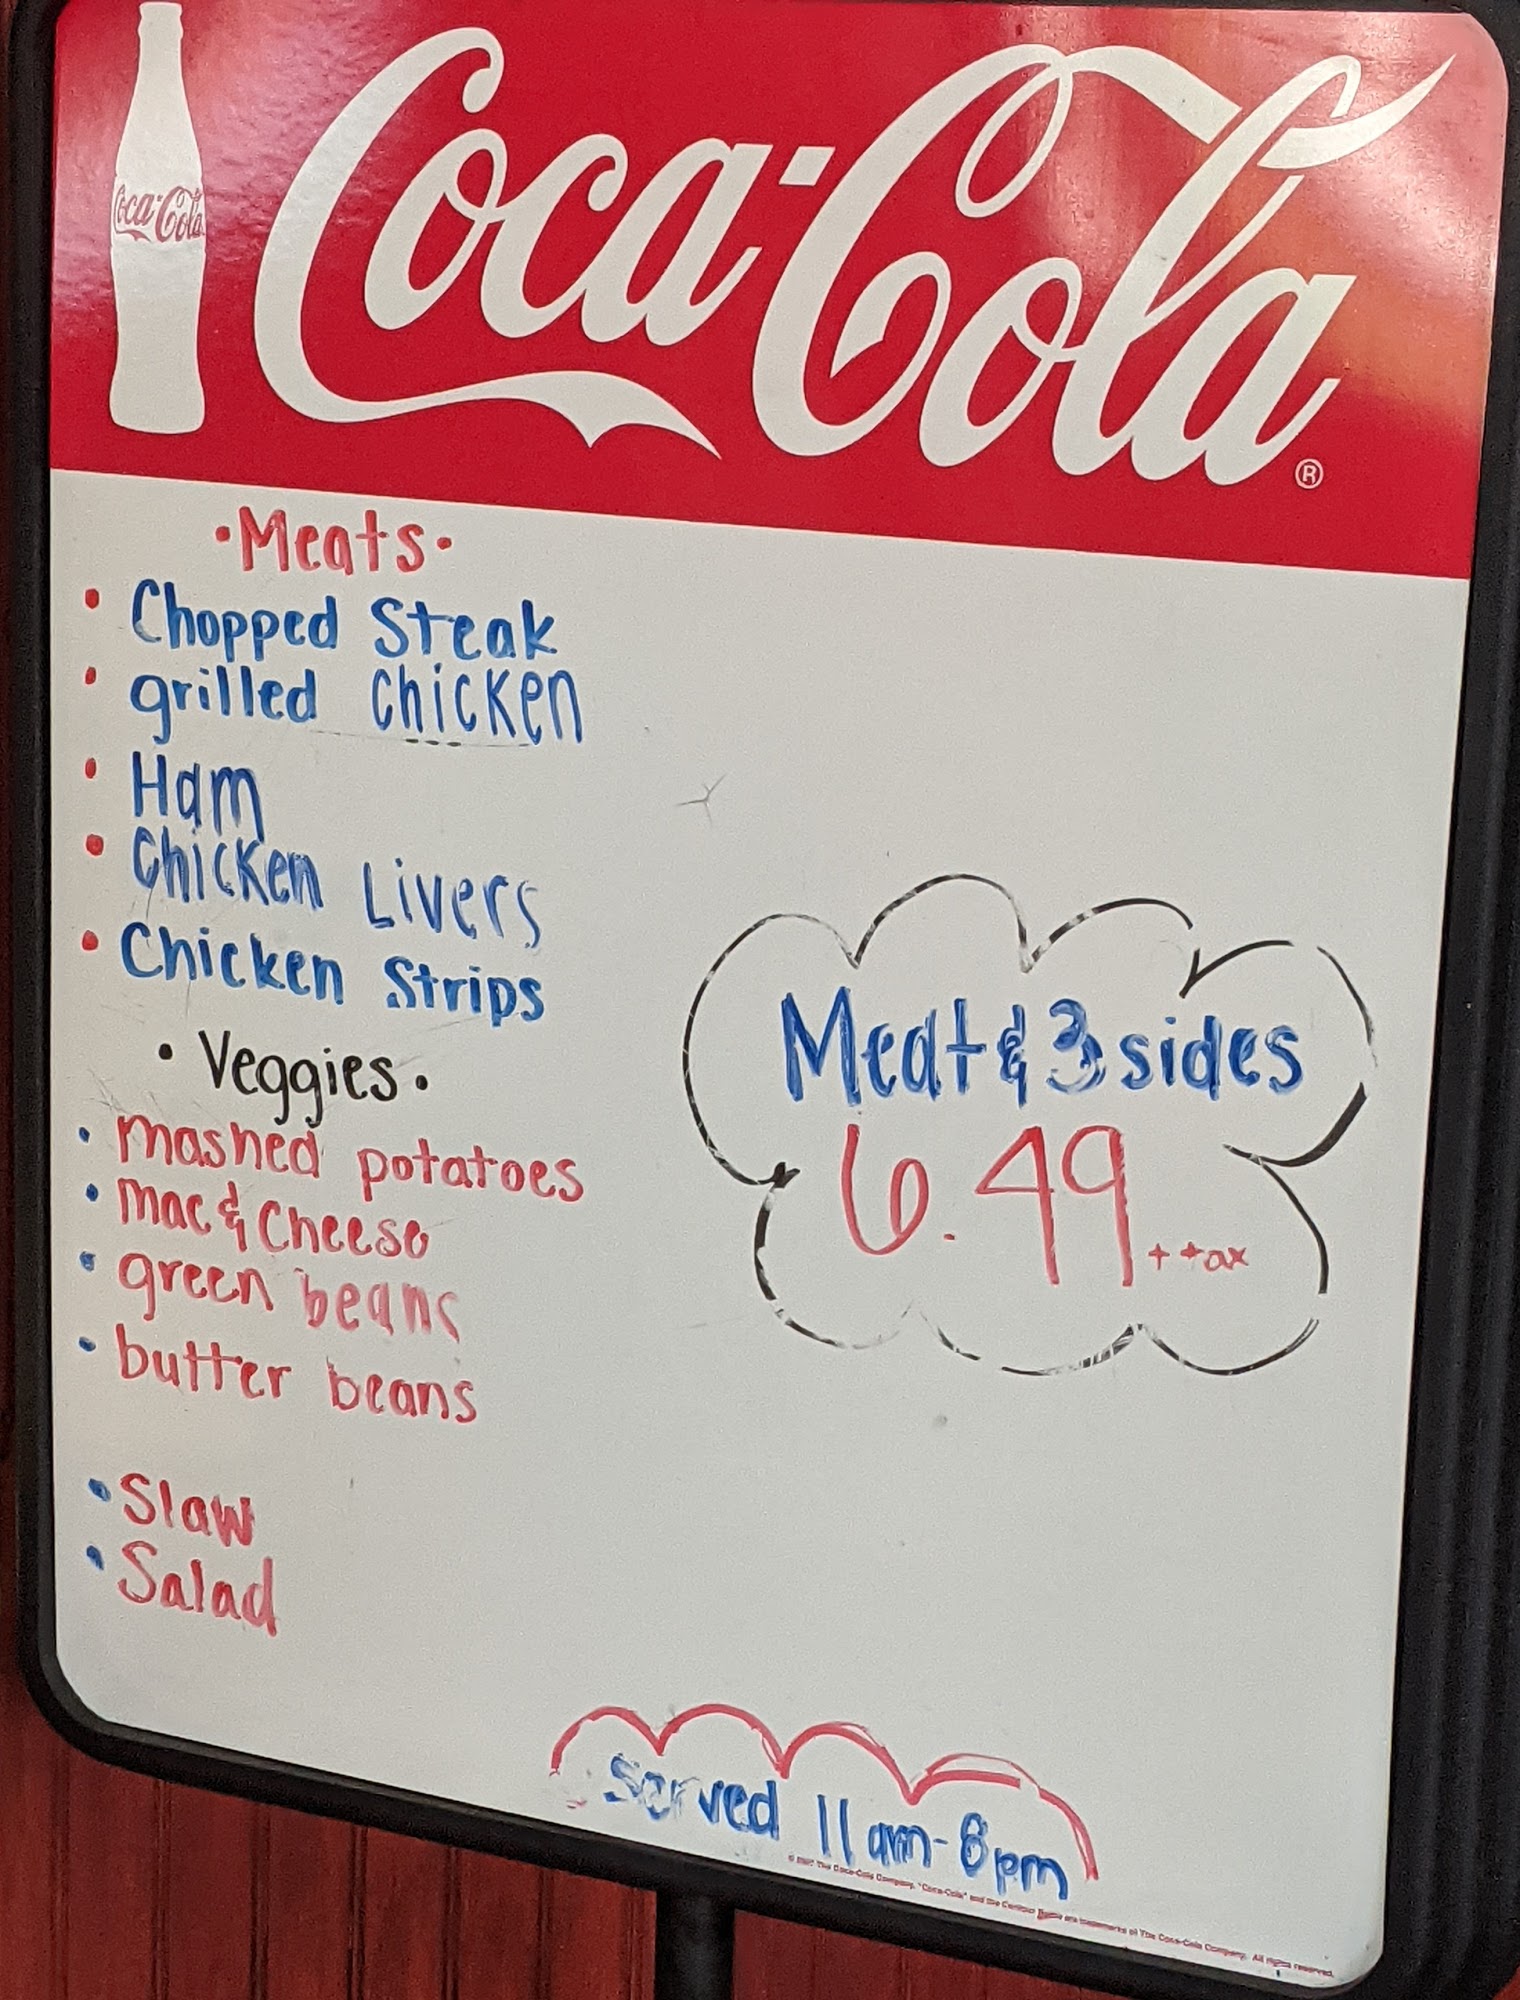 Coca-Cola
Coca-Cola®
·Meats·
• Chopped Steak
• grilled chicken
• Ham
• Chicken Livers
• Chicken Strips
• Veggies.
• mashed potatoes
• mac & cheese
• green beans
• butter beans
• Slaw
• Salad
Meat & 3 sides
6.49 + tax
Served 11am-8pm
The Coca-Cola Company. "Coca-Cola" and the Contour Bottle are trademarks of The Coca-Cola Company. All rights reserved.